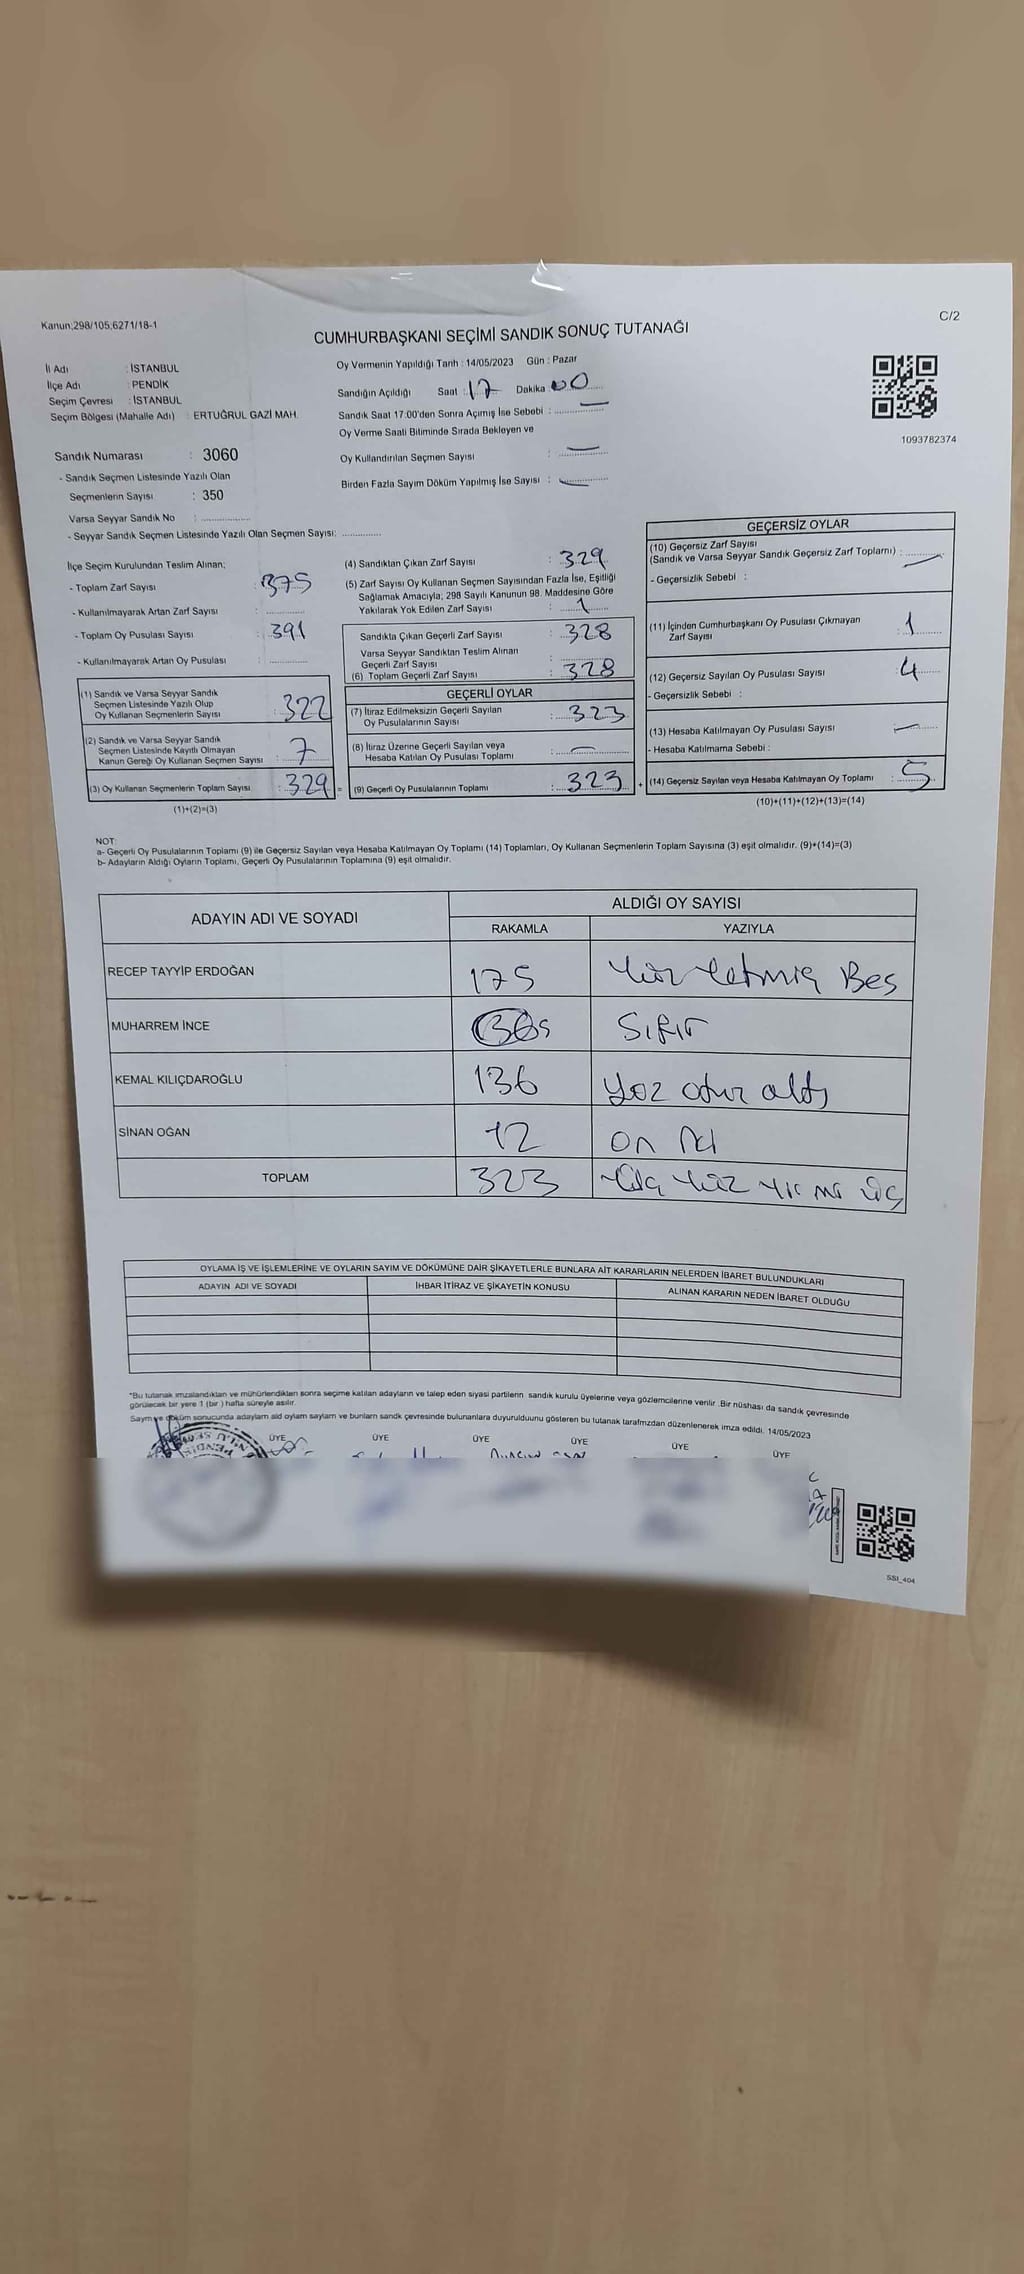 Kanun;298/105,6271/18-1
C/2
CUMHURBAŞKANI SEÇİMİ SANDIK SONUÇ TUTANAĞI
İl Adı : İSTANBUL
İlçe Adı : PENDİK
Seçim Çevresi : İSTANBUL
Seçim Bölgesi (Mahalle Adı) : ERTUĞRUL GAZİ MAH.
Oy Vermenin Yapıldığı Tarih : 14/05/2023 Gün : Pazar
Sandığın Açıldığı Saat : 17 Dakika 00
Sandık Saat 17:00'den Sonra Açımış İse Sebebi :
Oy Verme Saati Bitiminde Sırada Bekleyen ve
Oy Kullandırılan Seçmen Sayısı :
Birden Fazla Sayım Döküm Yapılmış İse Sayısı :
1093782374
Sandık Numarası : 3060
- Sandık Seçmen Listesinde Yazılı Olan
Seçmenlerin Sayısı : 350
Varsa Seyyar Sandık No :
- Seyyar Sandık Seçmen Listesinde Yazılı Olan Seçmen Sayısı:
İlçe Seçim Kurulundan Teslim Alınan;
- Toplam Zarf Sayısı : 375
- Kullanılmayarak Artan Zarf Sayısı :
- Toplam Oy Pusulası Sayısı : 391
- Kullanılmayarak Artan Oy Pusulası :
(1) Sandık ve Varsa Seyyar Sandık
Seçmen Listesinde Yazılı Olup
Oy Kullanan Seçmenlerin Sayısı : 322
(2) Sandık ve Varsa Seyyar Sandık
Seçmen Listesinde Kayıtlı Olmayan
Kanun Gereği Oy Kullanan Seçmen Sayısı : 7
(3) Oy Kullanan Seçmenlerin Toplam Sayısı : 329 =
(1)+(2)=(3)
(4) Sandıktan Çıkan Zarf Sayısı : 329
(5) Zarf Sayısı Oy Kullanan Seçmen Sayısından Fazla İse, Eşitliği
Sağlamak Amacıyla; 298 Sayılı Kanunun 98. Maddesine Göre
Yakılarak Yok Edilen Zarf Sayısı : 1
Sandıkta Çıkan Geçerli Zarf Sayısı : 328
Varsa Seyyar Sandıktan Teslim Alınan
Geçerli Zarf Sayısı :
(6) Toplam Geçerli Zarf Sayısı : 328
GEÇERLİ OYLAR
(7) İtiraz Edilmeksizin Geçerli Sayılan
Oy Pusulalarının Sayısı : 323
(8) İtiraz Üzerine Geçerli Sayılan veya
Hesaba Katılan Oy Pusulası Toplamı :
(9) Geçerli Oy Pusulalarının Toplamı : 323 +
GEÇERSİZ OYLAR
(10) Geçersiz Zarf Sayısı
(Sandık ve Varsa Seyyar Sandık Geçersiz Zarf Toplamı) :
- Geçersizlik Sebebi :
(11) İçinden Cumhurbaşkanı Oy Pusulası Çıkmayan
Zarf Sayısı : 1
(12) Geçersiz Sayılan Oy Pusulası Sayısı : 4
- Geçersizlik Sebebi :
(13) Hesaba Katılmayan Oy Pusulası Sayısı :
- Hesaba Katılmama Sebebi :
(14) Geçersiz Sayılan veya Hesaba Katılmayan Oy Toplamı : 5
(10)+(11)+(12)+(13)=(14)
NOT:
a- Geçerli Oy Pusulalarının Toplamı (9) ile Geçersiz Sayılan veya Hesaba Katılmayan Oy Toplamı (14) Toplamları, Oy Kullanan Seçmenlerin Toplam Sayısına (3) eşit olmalıdır. (9)+(14)=(3)
b- Adayların Aldığı Oyların Toplamı, Geçerli Oy Pusulalarının Toplamına (9) eşit olmalıdır.
ADAYIN ADI VE SOYADI ALDIĞI OY SAYISI
RAKAMLA YAZIYLA
RECEP TAYYİP ERDOĞAN 175 Yüz Yetmiş Beş
MUHARREM İNCE SIFIR
KEMAL KILIÇDAROĞLU 136 yüz otuz altı
SİNAN OĞAN 12 on iki
TOPLAM 323 Üç Yüz Yirmi üç
OYLAMA İŞ VE İŞLEMLERİNE VE OYLARIN SAYIM VE DÖKÜMÜNE DAİR ŞİKAYETLERLE BUNLARA AİT KARARLARIN NELERDEN İBARET BULUNDUKLARI
ADAYIN ADI VE SOYADI İHBAR İTİRAZ VE ŞİKAYETİN KONUSU ALINAN KARARIN NEDEN İBARET OLDUĞU
*Bu tutanak imzalandıktan ve mühürlendikten sonra seçime katılan adayların ve talep eden siyasi partilerin sandık kurulu üyelerine veya gözlemcilerine verilir .Bir nüshası da sandık çevresinde
görülecek bir yere 1 (bir ) hafta süreyle asılır.
Sayım ve döküm sonucunda adayların aldı oyların sayları ve bunların sandk çevresinde bulunanlara duyurulduunu gösteren bu tutanak tarafmzdan düzenlenerek imza edildi. 14/05/2023
ÜYE ÜYE ÜYE ÜYE ÜYE ÜYE
PENDİK
SSI_404